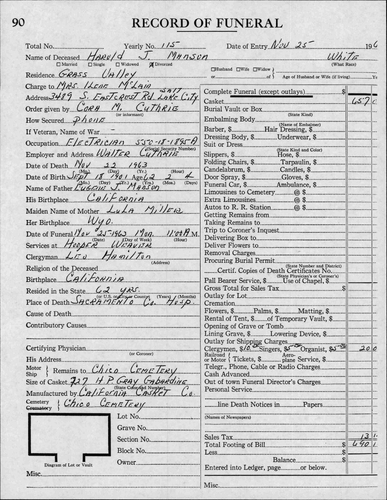 90 RECORD OF FUNERAL
Total No. Yearly No. 115 Date of Entry Nov 25 196
Name of Deceased Harold J. Manson White
☐ Married ☐ Single ☐ Widowed ☑ Divorced (What Race)
Residence Grass Valley ☐ Husband ☐ Wife ☐ Widow or Age of Husband or Wife (if living) Yrs.
Charge to Mrs Ilene McLain
Address 3489 S. Eastcrest Rd. Salt Lake City
Order given by Cora M. Cuthrie
(or informant)
How Secured phone
If Veteran, Name of War
Occupation Electrician 550-18-1895A
(Social Security Number)
Employer and Address Walter Cuthrie
Date of Death Nov 22 1963
Date of Birth Sept 18 1901 Age 62 2 4
Name of Father Eugene J. Manson
His Birthplace California
Maiden Name of Mother Lula Miller
Her Birthplace Wyo.
Date of Funeral Nov 25-1963 Mon. 11:00 A.M.
(Date) (Day of Week) (Hour)
Services at Hooper Weaver
Clergymen Leo Hamilton
(Address)
Religion of the Deceased
Birthplace California
Resided in the State 62 yrs
Place of Death Sacramento Co. Hosp.
Cause of Death
Contributory Causes
Certifying Physician
(or Coroner)
His Address
Motor Ship Remains to Chico Cemetery
Size of Casket 727 H.P. Gray Gabardine
(State Casket Number)
Manufactured by California Casket Co
Cemetery Crematory Chico Cemetery
Lot No.
Grave No.
Section No.
Block No.
Owner
Diagram of Lot or Vault
Misc.
Complete Funeral (except outlays) $
Casket 657
Burial Vault or Box
(State Kind)
Embalming Body
(Name of Embalmer)
Barber, $ Hair Dressing, $
Dressing Body, $ Underwear, $
Suit or Dress
(State Kind and Color)
Slippers, $ Hose, $
Folding Chairs, $ Tarpaulin, $
Candelabrum, $ Candles, $
Door Spray, $ Gloves, $
Funeral Car, $ Ambulance, $
Limousines to Cemetery @ $
Extra Limousines @ $
Autos to R. R. Station @ $
Getting Remains from
Taking Remains to
Trip to Coroner's Inquest
Delivering Box to
Deliver Flowers to
Removal Charges
Procuring Burial Permit
(State Number and District)
Certif. Copies of Death Certificates No.
(State Physician's or Coroner's)
Pall Bearer Service, $ Use of Chapel, $
Gross Total for Sales Tax $
Outlay for Lot
Cremation
Flowers, $ Palms, $ Matting, $
Rental of Tent, $ of Temporary Vault, $
Opening of Grave or Tomb
Lining Grave, $ Lowering Device, $
Outlay for Shipping Charges
Clergymen, $10.00 Singers, $5.00 Organist, $5.00 20 0
Railroad or Motor Tickets, $ Aeroplane Service, $
Telegr., Phone, Cable or Radio Charges
Cash Advanced
Out of town Funeral Director's Charges
Personal Service
line Death Notices in Papers
(Names of Newspapers)
Sales Tax $ 13
Total Footing of Bill $ 690
Less $
Balance $
Entered into Ledger, page or below.
Misc.